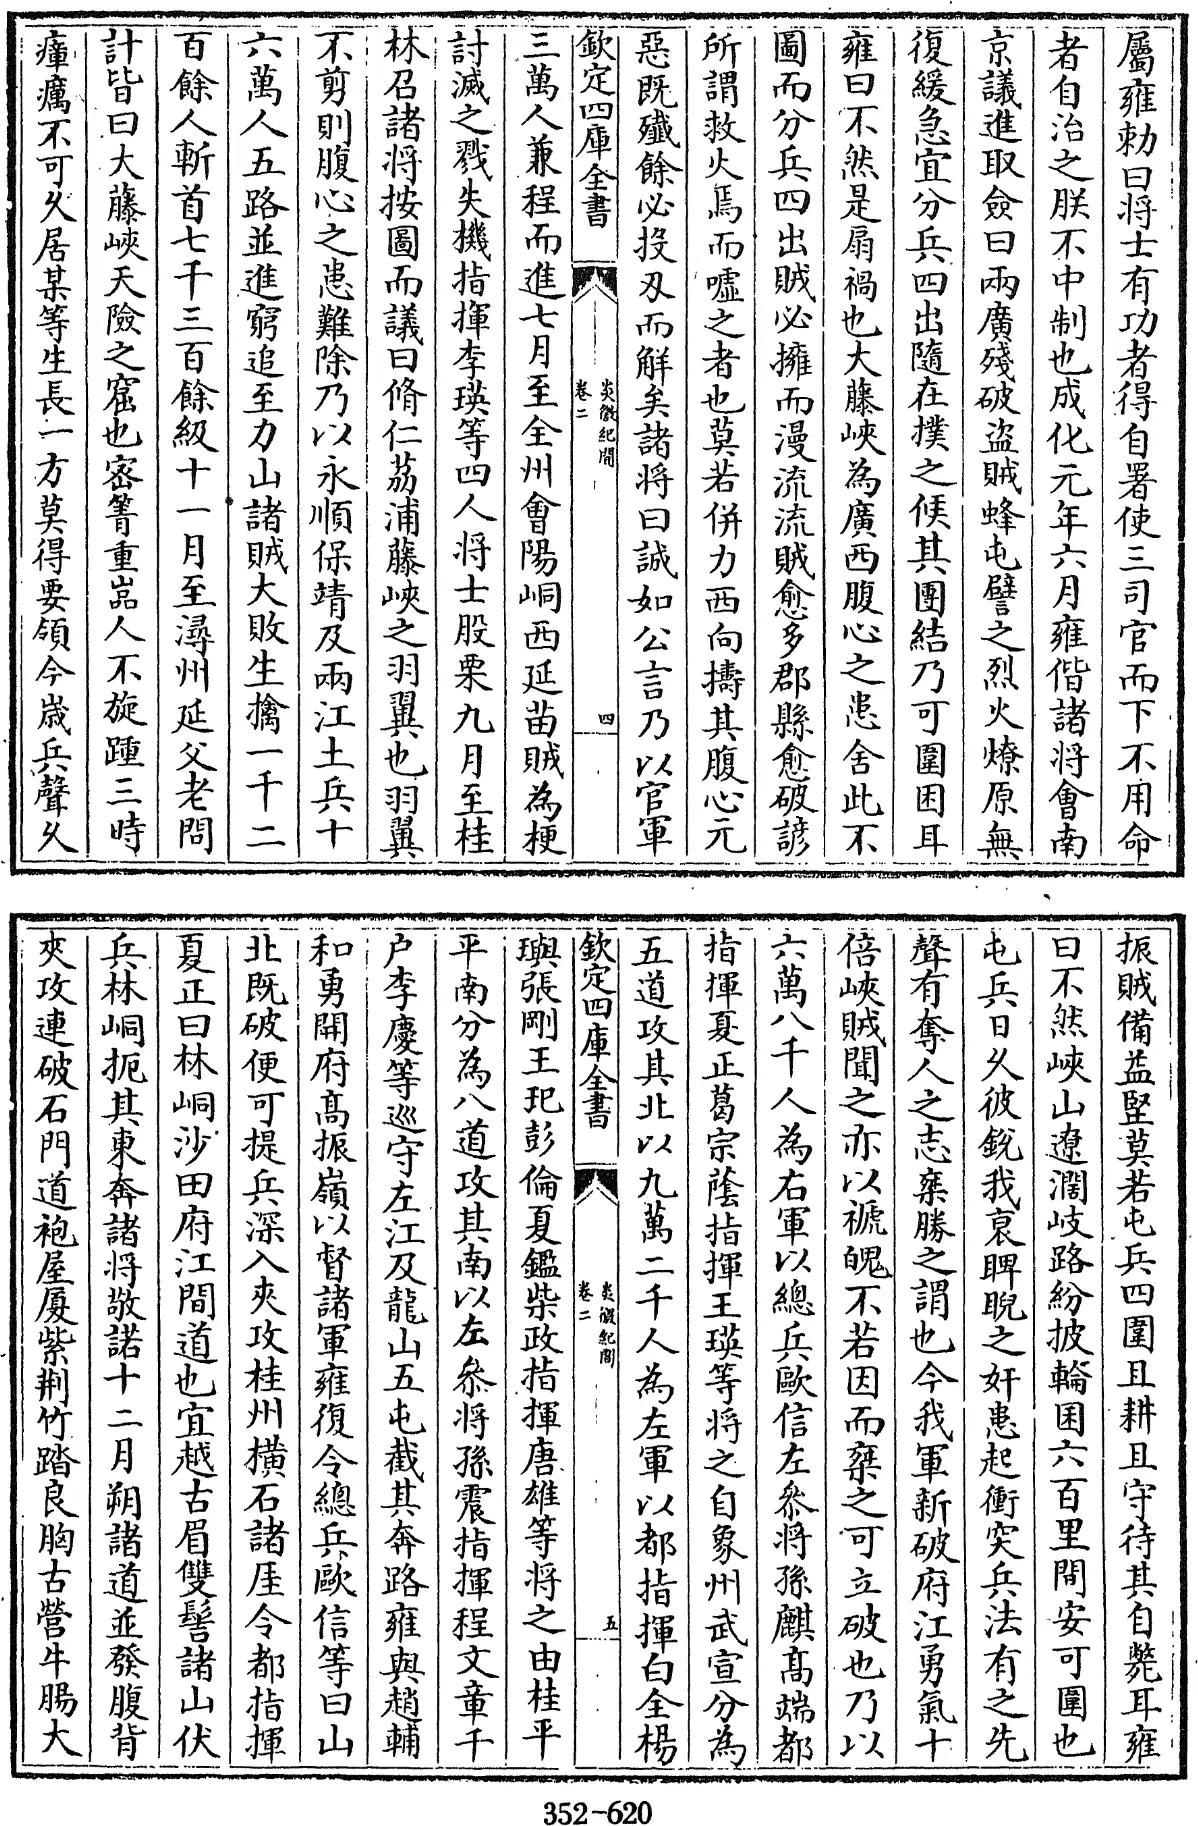 屬雍勑曰將士有功者得自署使三司官而下不用命
者自治之朕不中制也成化元年六月雍偕諸將會南
京議進取僉曰兩廣殘破盜賊蜂屯譬之烈火燎原無
復緩急宜分兵四出隨在撲之俟其團結乃可圍困耳
雍曰不然是扇禍也大藤峽為廣西腹心之患舍此不
圖而分兵四出賊必擁而漫流流賊愈多郡縣愈破諺
所謂救火焉而噓之者也莫若併力西向擣其腹心元
惡既殲餘必投刃而解矣諸將曰誠如公言乃以官軍
欽定四庫全書
炎徼紀聞
卷二
四
三萬人兼程而進七月至全州會陽峒西延苗賊為梗
討滅之戮失機指揮李瑛等四人將士股栗九月至桂
林召諸將按圖而議曰脩仁荔浦藤峽之羽翼也羽翼
不剪則腹心之患難除乃以永順保靖及兩江土兵十
六萬人五路並進窮追至力山諸賊大敗生擒一千二
百餘人斬首七千三百餘級十一月至潯州延父老問
計皆曰大藤峽天險之窟也宻箐重嵓人不旋踵三時
瘴癘不可久居某等生長一方莫得要領今歲兵聲久
振賊備益堅莫若屯兵四圍且耕且守待其自斃耳雍
曰不然峽山遼濶岐路紛披輪囷六百里間安可圍也
屯兵日久彼銳我衰睥睨之奸患起衝突兵法有之先
聲有奪人之志乘勝之謂也今我軍新破府江勇氣十
倍峽賊聞之亦以褫魄不若因而乘之可立破也乃以
六萬八千人為右軍以總兵歐信左叅將孫麒髙端都
指揮夏正葛宗蔭指揮王瑛等將之自象州武宣分為
五道攻其北以九萬二千人為左軍以都指揮白全楊
欽定四庫全書
炎徼紀聞
卷二
五
璵張剛王玘彭倫夏鑑柴政指揮唐雄等將之由桂平
平南分為八道攻其南以左叅將孫震指揮程文章千
户李慶等廵守左江及龍山五屯截其奔路雍與趙輔
和勇開府髙振嶺以督諸軍雍復令總兵歐信等曰山
北既破便可提兵深入夾攻桂州橫石諸厓令都指揮
夏正曰林峒沙田府江間道也宜越古眉雙髻諸山伏
兵林峒扼其東奔諸將敬諾十二月朔諸道並發腹背
夾攻連破石門道袍屋厦紫荆竹踏良胸古營牛腸大
352-620